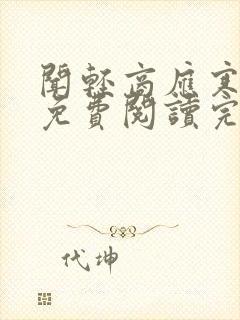 聞輕高雁寒
免費閱讀完
代坤